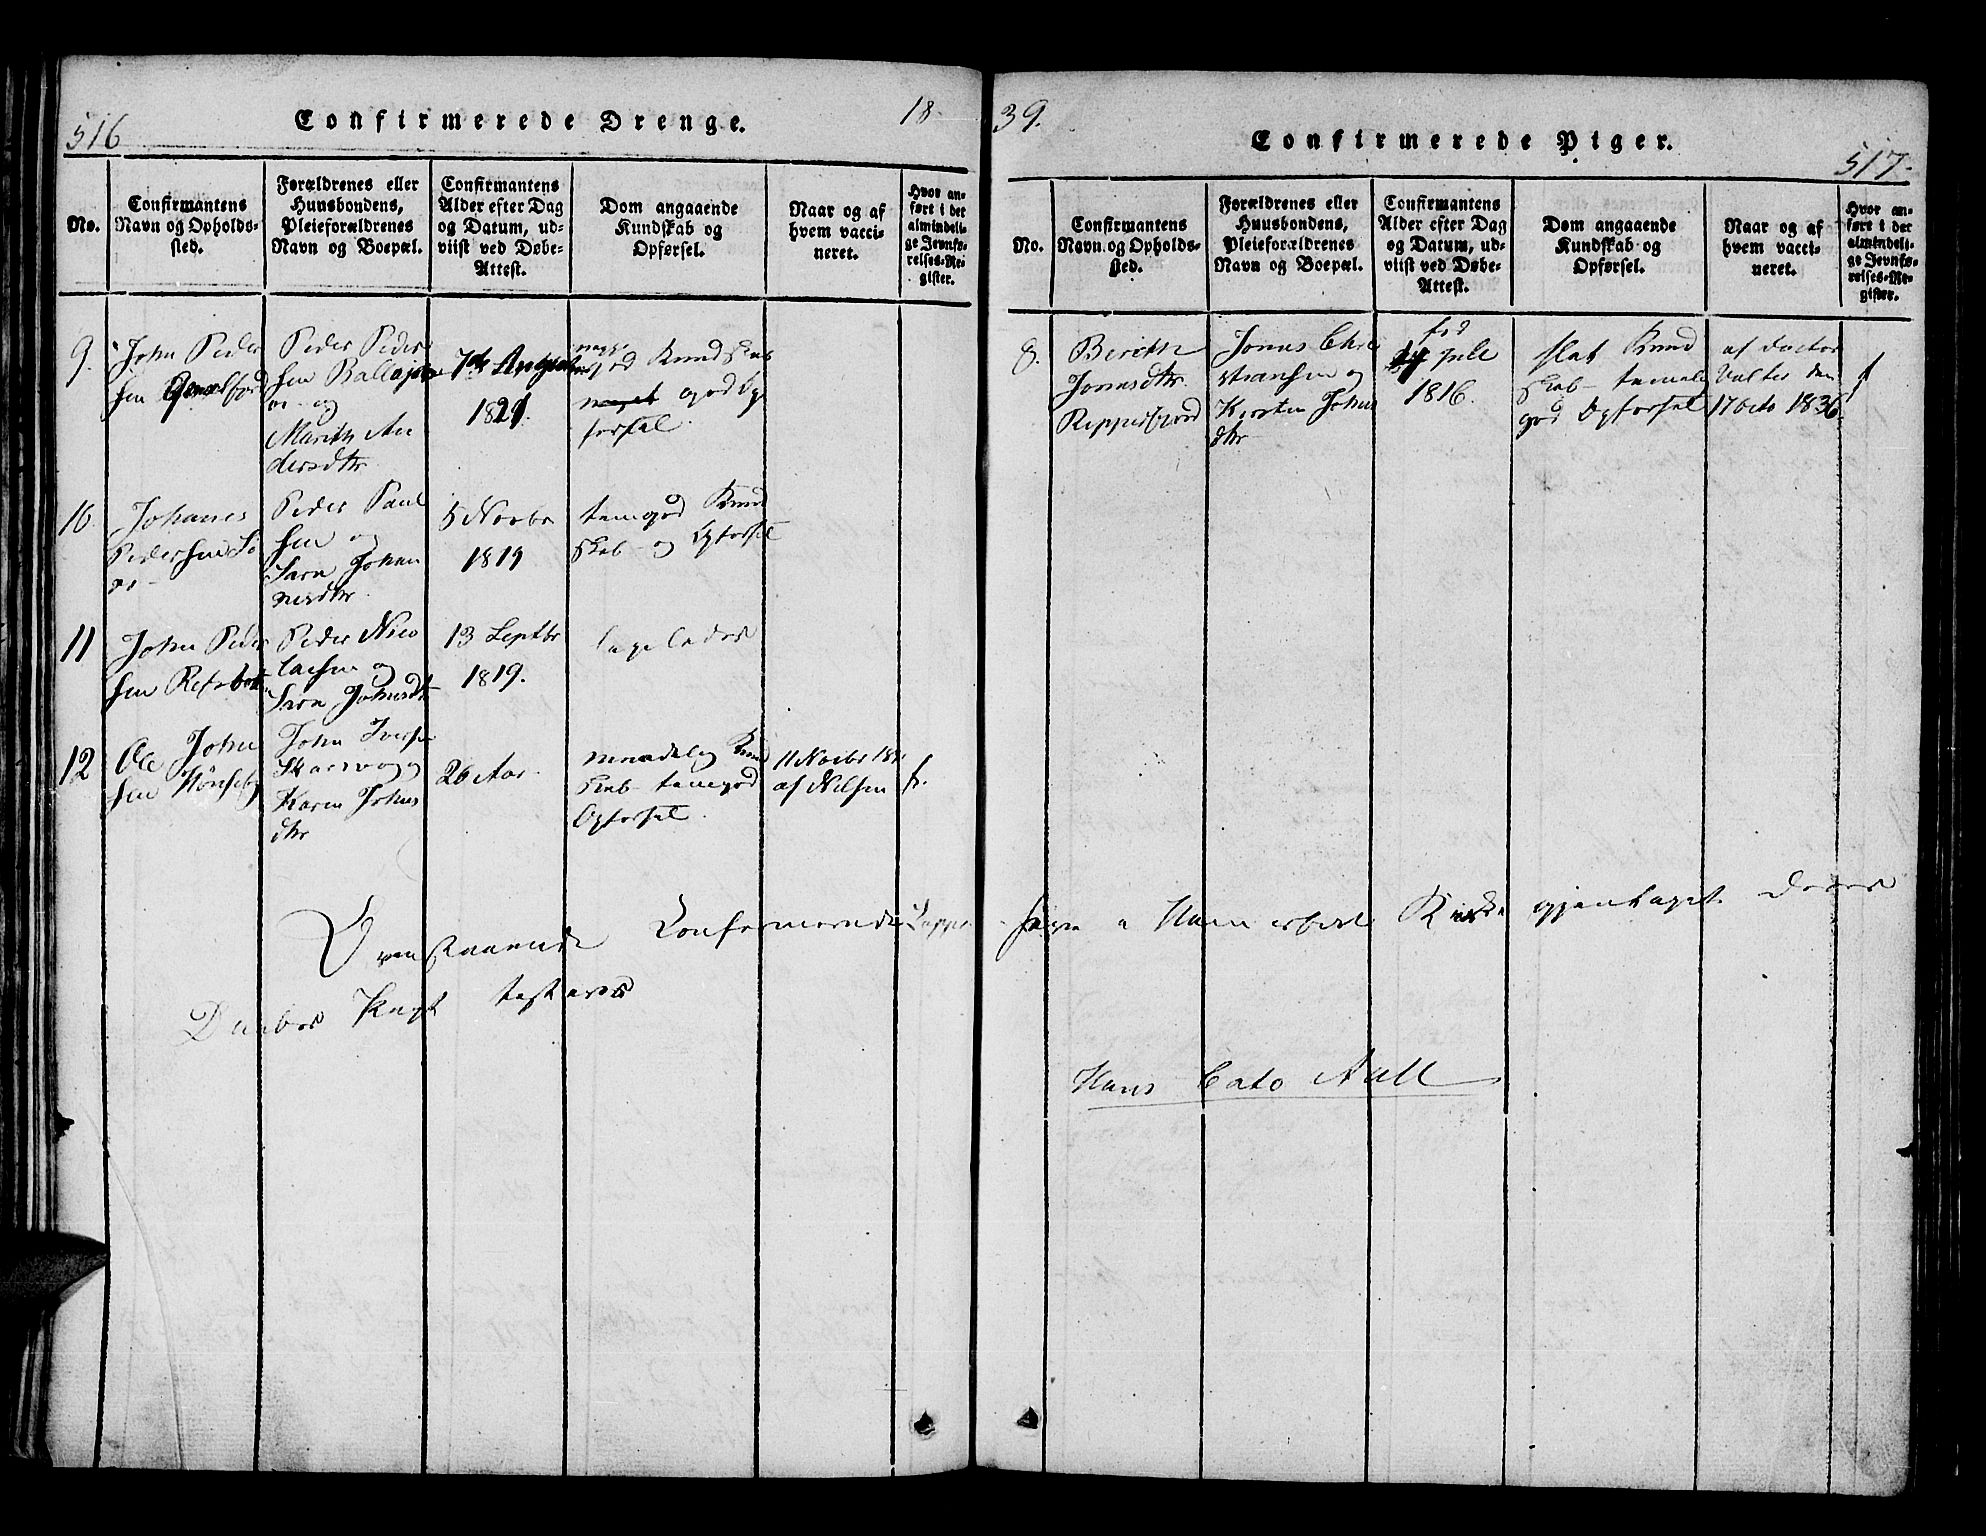 516
Confirmerede Drenge.
18
No.
Confirmantens
Navn og Opholds-
sted.
Forældrenes eller
Huusbondens,
Pleieforældrenes
Navn og Boepæl.
Confirmantens
Alder efter Dag
og Datum, ud-
viist ved Døbe-
Attest.
Dom angaaende
Kundskab og
Opførsel.
Naar og af
hvem vacci-
neret.
Hvor an-
ført i det
almindeli-
ge Jevnfø-
relses-Re-
gister.
9.
John Peder
sen
Peder Peder
sen
og
Marith An
dersdtr
7de August
1821.
god Kundskab
meget god Op
førsel.
10.
Johanes
Pedersen
Peder Paul
sen og
Sara Johan
nesdtr.
5 Novbr
1819
temgod Kund
skab og Opførsel
11
John Peder
sen Refsbotn
Peder Nico
laisen og
Sara Johnsdtr
13 Septbr
1819.
ligeledes
12
Ole John
sen Hønseby
John Iversen
og
Karen Johns
dtr
26 Aar.
maadelig Kund
skab temgod
Opførsel.
11 Novbr
af Nilsen
f.
Ovenstaaende Confirmerede
Daabes Pagt testerer
39.
Confirmerede Piger.
517.
No.
Confirmantens
Navn og Opholds-
sted.
Forældrenes eller
Huusbondens,
Pleieforældrenes
Navn og Boepæl.
Confirmantens
Alder efter Dag
og Datum, ud-
viist ved Døbe-
Attest.
Dom angaaende
Kundskab og
Opførsel.
Naar og af
hvem vacci-
neret.
Hvor an-
ført i det
almindeli-
ge Jevnfø-
relses-Re-
gister.
8.
Bereth
Jonasdtr.
Repperfjord
Jonas Chri
stiansen og
Kirsten Johns
dtr
fød
Jule
1816.
slet Kund
skab temelig
god Opførsel
af Doctor
Valter den
17 Octo 1836.
f
i Hammerfest Kirke gjentaget deres
Hans Cato Aall